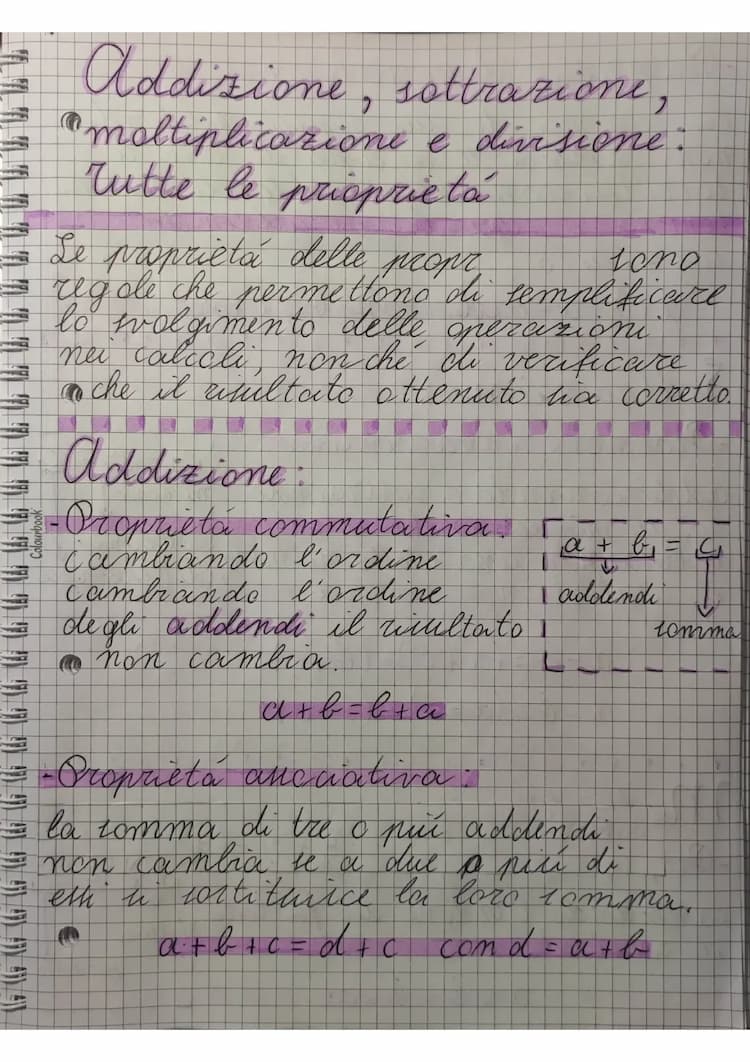 Addizione, sottrazione,
moltiplicazione e divisione:
tutte le proprietá
Le proprietá delle propr sono
regole che permettono di semplificare
lo svolgimento delle operazioni
nei calcoli, nonché di verificare
che il risultato ottenuto sia corretto.
Addizione:
-Proprietá commutativa:
cambiando l'ordine
cambiando l'ordine
degli addendi il risultato
non cambia.
a + b = c
addendi
somma
a+b=b+a
-Proprietá associativa:
la somma di tre o piú addendi
non cambia se a due o piú di
essi si sostituisce la loro somma.
a+b+c=d+c con d=a+b
Colourbook